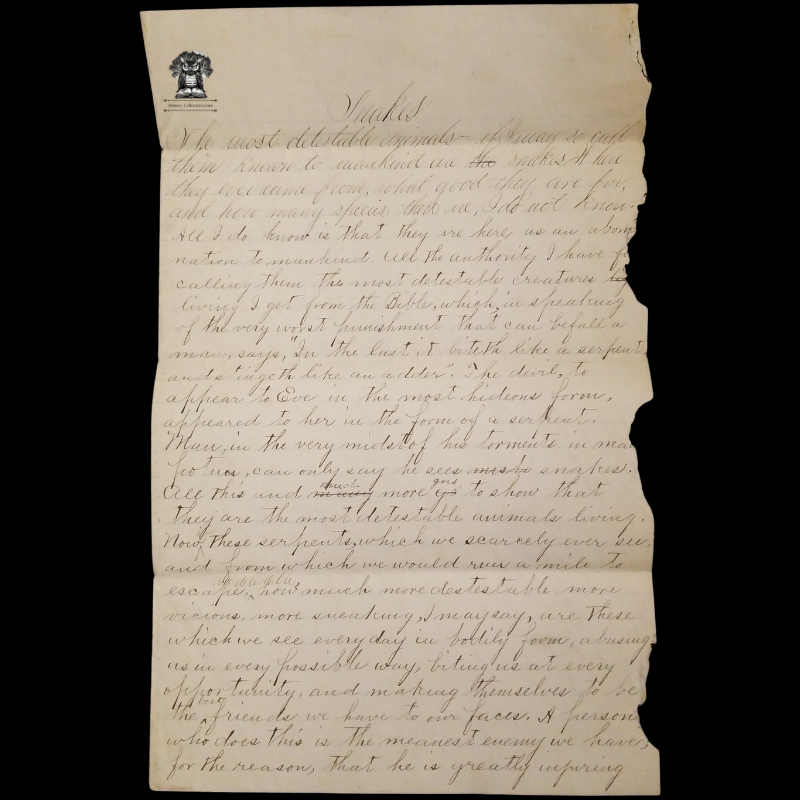 History Collection.com
Snakes
The most detestable animals – if I may so call
them – known to mankind are the snakes. Where
they ever came from, what good they are for,
and how many species there are, I do not know.
All I do know is that they are here as an abomi
nation to mankind. All the authority I have fo
calling them the most detestable creatures
living I get from the Bible, which, in speaking
of the very worst punishment that can befall a
man, says, "In the last it biteth like a serpent
and stingeth like an adder". The devil, to
appear to Eve in the most hideous form,
appeared to her in the form of a serpent.
Man, in the very midst of his torments in
, can only say he sees snakes.
All this and many much more go goes to show that
they are the most detestable animals living.
Now, these serpents, which we scarcely ever see
and from which we would run a mile to
escape, how much more destestable, more
vicious, more sneaking, I may say, are these
which we see everyday in bodily form, abusing
us in every possible way, biting us at every
opportunity, and making themselves to be
the best friends we have to our faces. A person
who does this is the meanest enemy we have,
for the reason, that he is greatly injuring